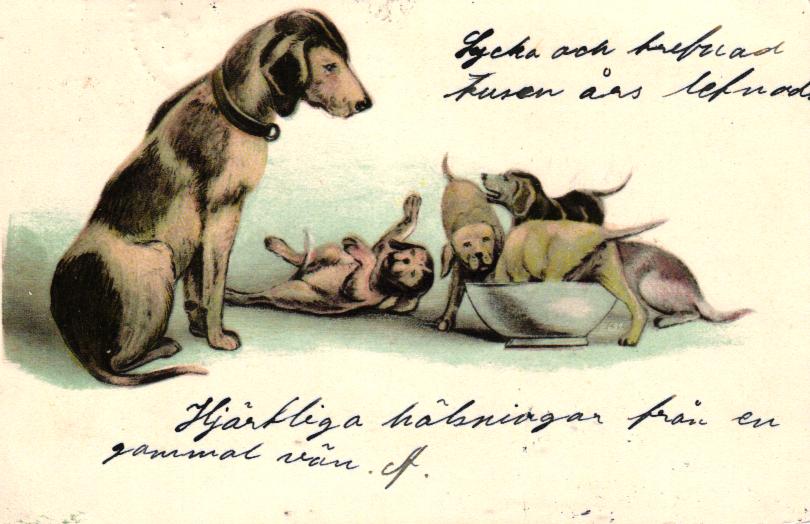 Lycka och trefnad
tusen års lefnad
Hjärtliga hälsningar från en
gammal vän. A.